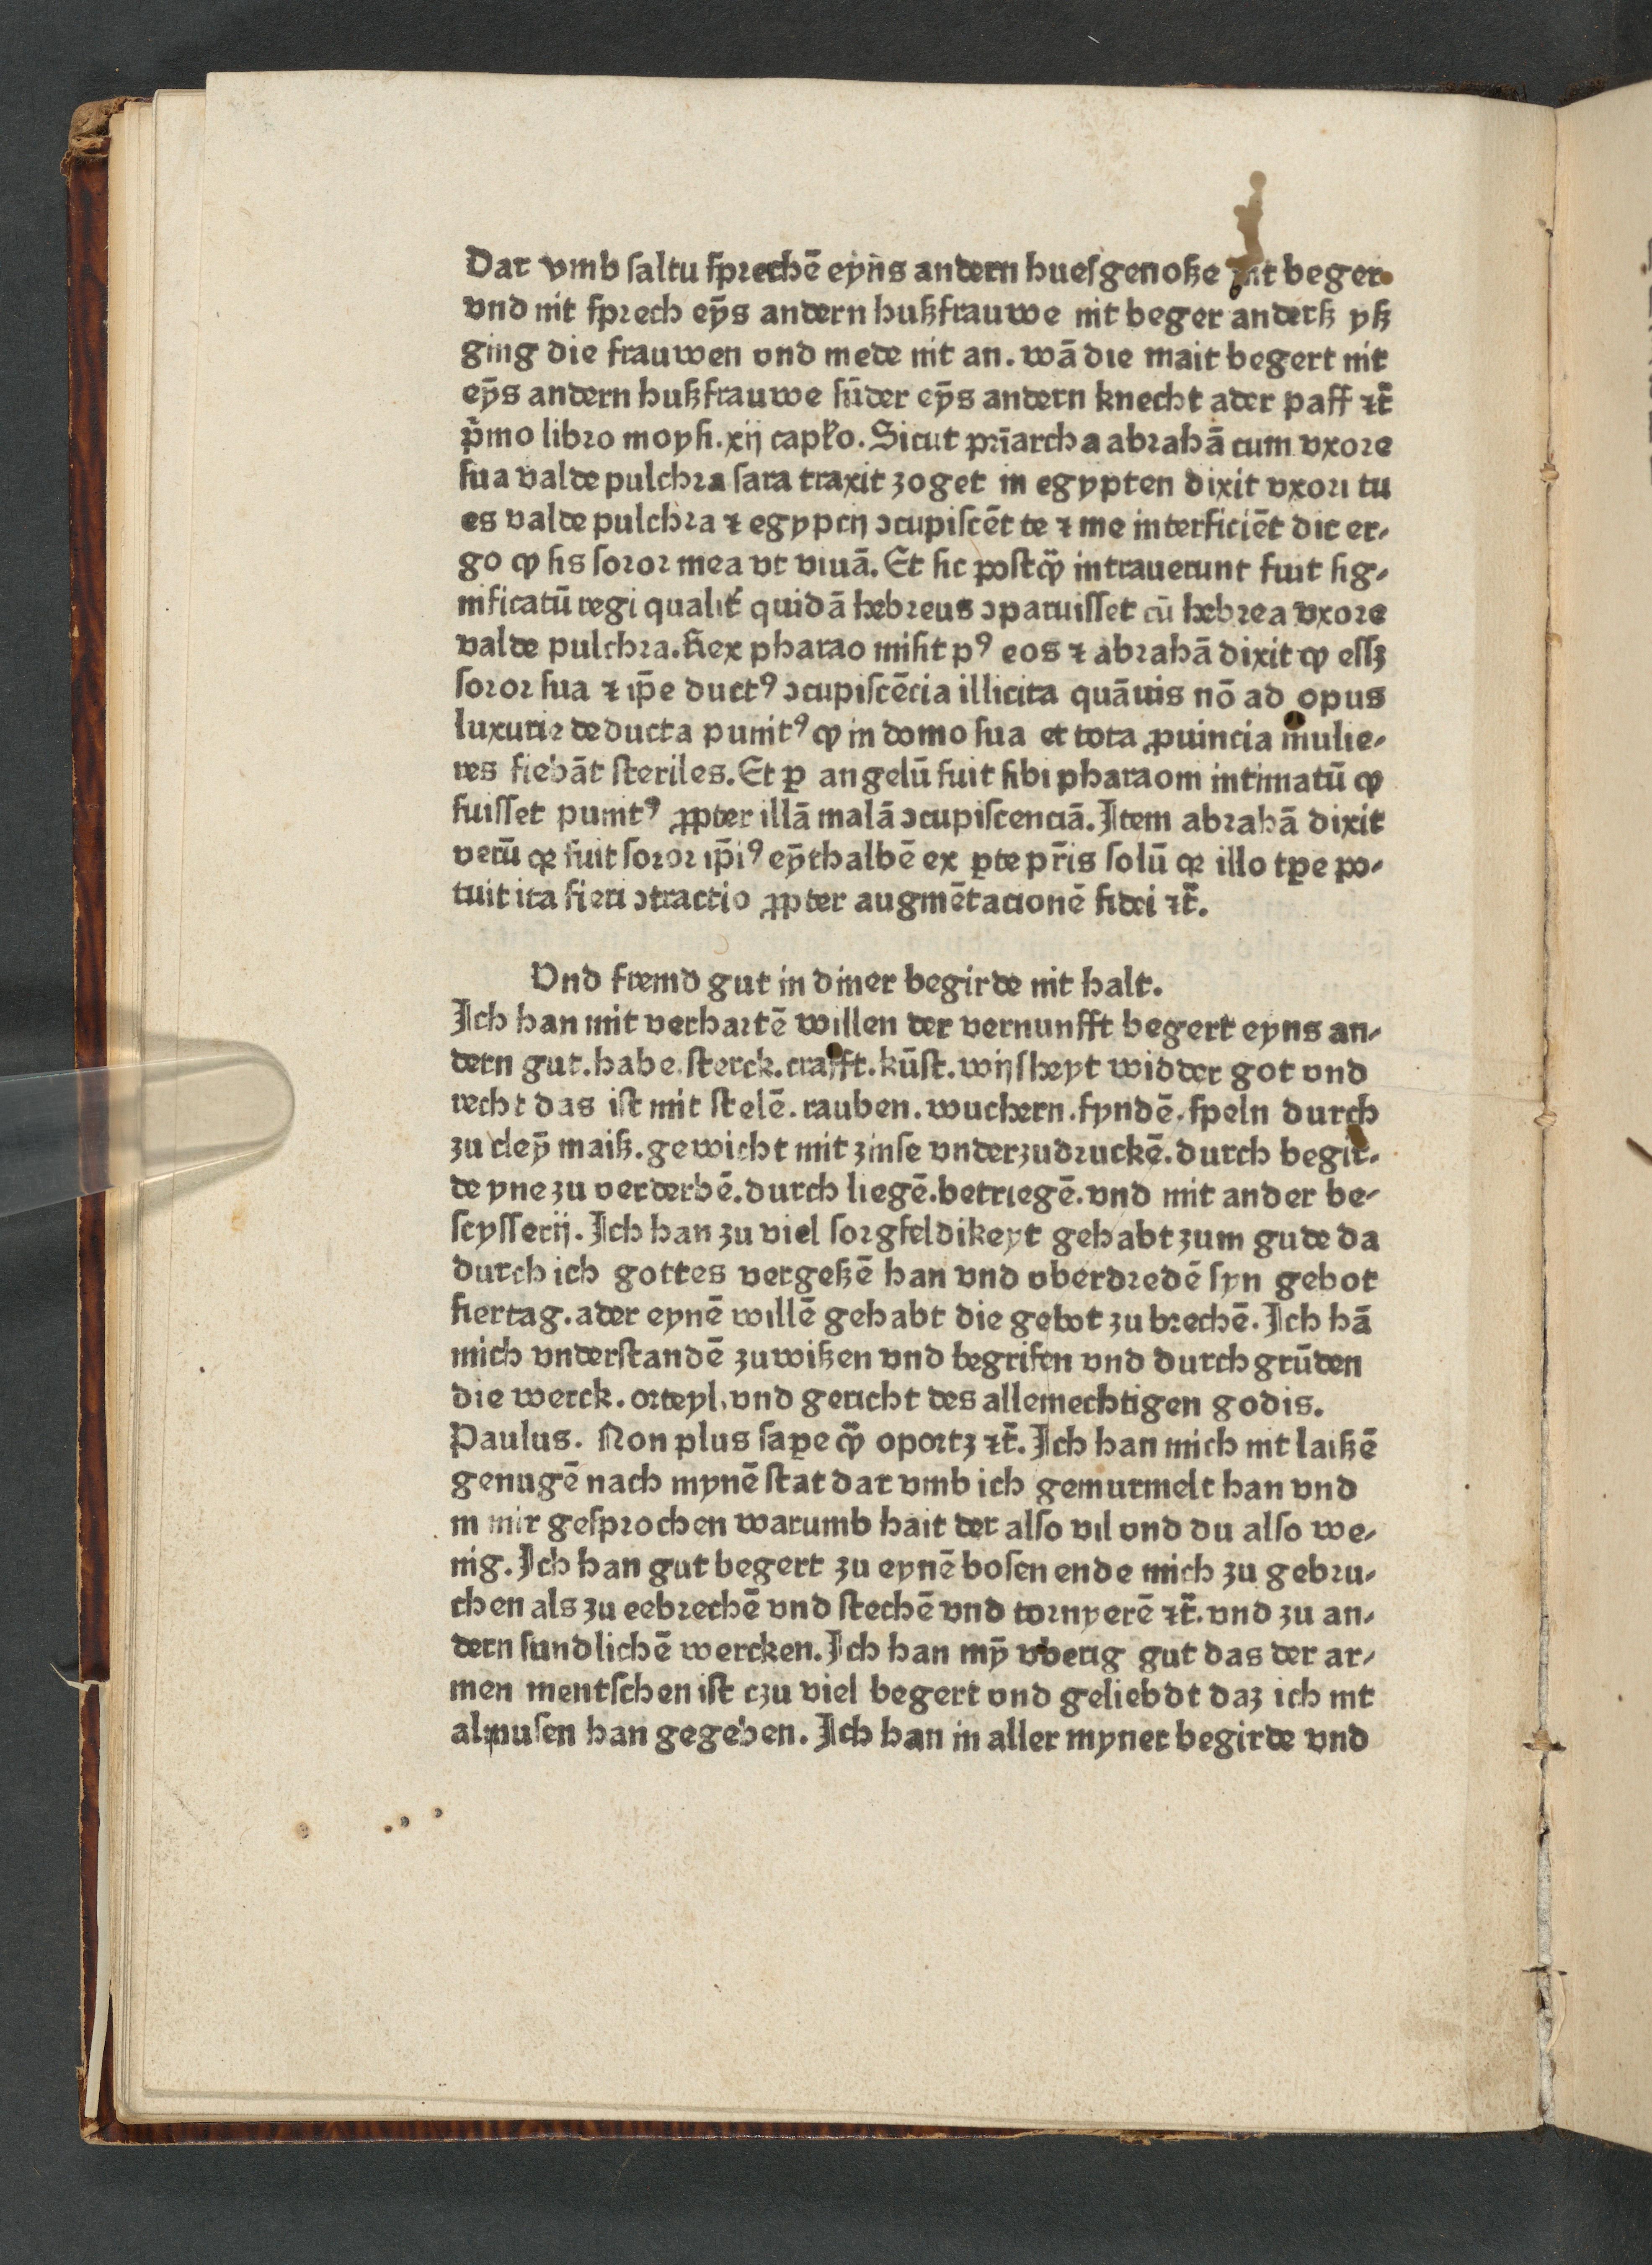 Dar vmb saltu sprechē eyns andern huesgenoße nit beger
vnd nit sprech eȳs andern hußfrauwe nit beger anderß yß
ging die frauwen vnd mede nit an. wā die mait begert nit
eȳs andern hußfrauwe sūder eȳs andern knecht ader paff ꝛc̄
p̄mo libro moysi. xij capľo. Sicut pr̄iarcha abrahā cum vxore
sua valde pulchra sara traxit zoget in egypten dixit vxori tu
es valde pulchra ⁊ egypcij ↄcupiscēt te ⁊ me interficiēt dic er⸗
go ꝙ sis soror mea vt viuā. Et sic postꝙ̄ intrauerunt fuit sig⸗
nificatū regi qualit᷑ quidā hebreus ↄparuisset cū hebrea vxore
valde pulchra. Rex pharao misit pꝰ eos ⁊ abrahā dixit ꝙ essꝫ
soror sua ⁊ ip̄e ductꝰ ↄcupiscēcia illicita quāuis nō ad opus
luxurie deducta punitꝰ ꝙ in domo sua et tota ꝓuincia mulie⸗
res fiebāt steriles. Et ꝑ angelū fuit sibi pharaoni intimatū ꝙ
fuisset punitꝰ ꝓpter illā malā ↄcupiscenciā. Item abrahā dixit
verū qꝛ fuit soror ip̄iꝰ eȳthalbē ex ꝑte pr̄is solū qꝛ illo tꝑe po⸗
tuit ita fieri ↄtractio ꝓpter augmētacionē fidei ꝛc̄.
Vnd fremd gut in diner begirde nit halt.
Ich han mit verhartē willen der vernunfft begert eyns an⸗
dern gut. habe. sterck. crafft. kūst. wijsheyt widder got vnd
recht das ist mit stelē. rauben. wuchern. fyndē. speln durch
zu cleȳ maiß. gewicht mit zinse vnderzudruckē. durch begir⸗
de yne zu verderbē. durch liegē. betriegē. vnd mit ander be⸗
scysserij. Ich han zu viel sorgfeldikeyt gehabt zum gude da
durch ich gottes vergeßē han vnd vberdredē syn gebot
fiertag. ader eynē willē gehabt die gebot zu brechē. Ich hā
mich vnderstandē zuwißen vnd begrifen vnd durchgrūden
die werck. orteyl. vnd gericht des allemechtigen godis.
Paulus. Non plus saꝑe ꝙ̄ oportꝫ ꝛc̄. Ich han mich nit laißē
genugē nach mynē stat dar vmb ich gemurmelt han vnd
in mir gesprochen warumb hait der also vil vnd du also we⸗
nig. Ich han gut begert zu eynē bosen ende mich zu gebru⸗
chen als zu eebrechē vnd stechē vnd tornyerē ꝛc̄. vnd zu an⸗
dern sundlichē wercken. Ich han mȳ vberig gut das der ar⸗
men mentschen ist czu viel begert vnd geliebdt daz ich nit
almusen han gegeben. Ich han in aller myner begirde vnd